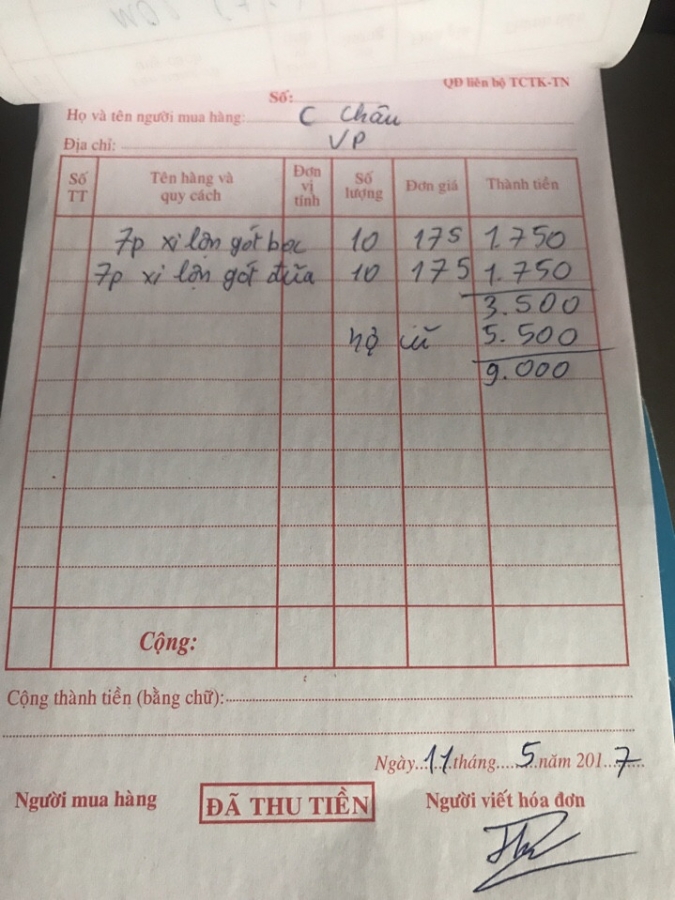 QĐ liên bộ TCTK-TN
Số:
Họ và tên người mua hàng: C Châu
Địa chỉ: VP
Số TT Tên hàng và quy cách Đơn vị tính Số lượng Đơn giá Thành tiền
7p xi lợn gót bọc 10 175 1.750
7p xi lợn gót đũa 10 175 1.750
3.500
nợ cũ 5.500
9.000
Cộng:
Cộng thành tiền (bằng chữ):
Ngày 11 tháng 5 năm 2017
Người mua hàng ĐÃ THU TIỀN Người viết hóa đơn